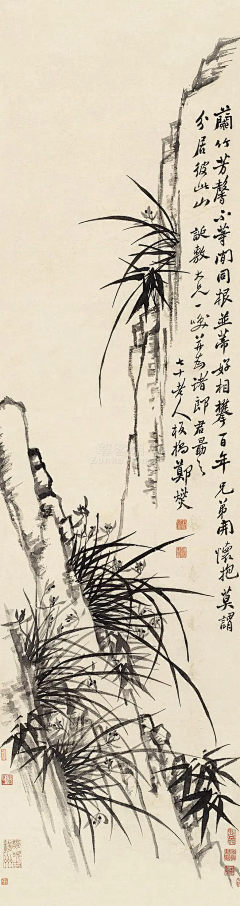 蘭竹芳馨不等閒同根並蒂好相攀百年兄弟開懷抱莫謂
分居彼此山 誕敷大兄一咲并為諸郎君最之
七十老人板橋鄭燮